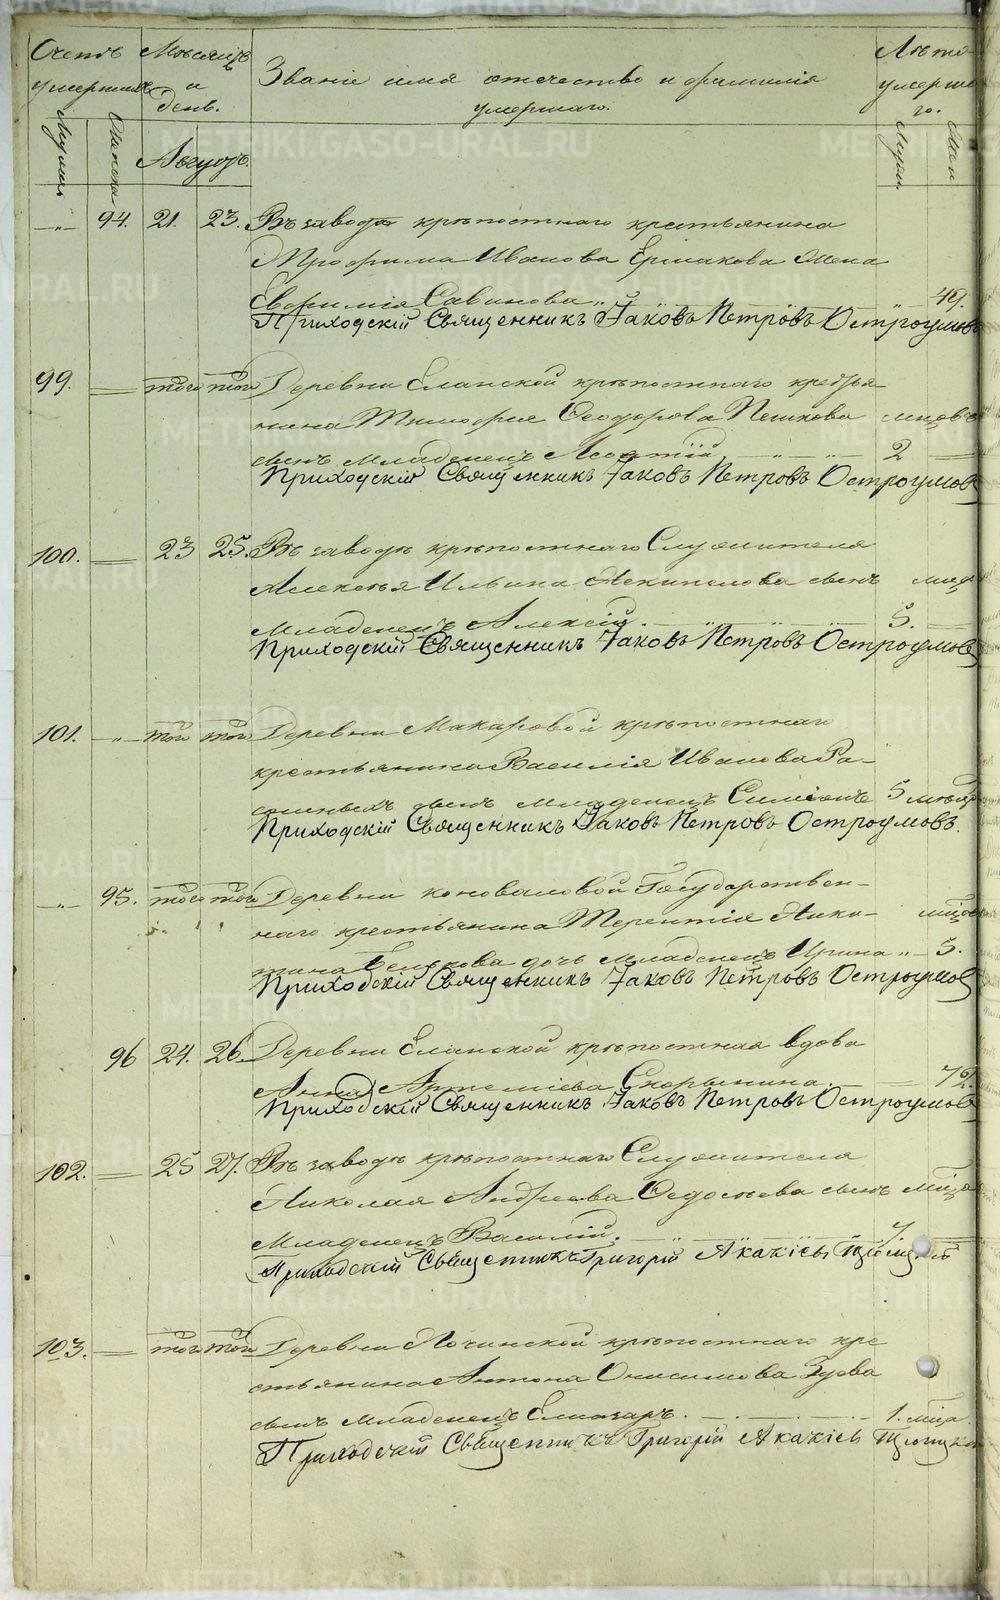 Счетъ умершихъ Мѣсяцъ и день. Званіе имя отечество и фамилія умершаго. Лѣта умершаго.
Мужска Женска Августъ. Мужск Женск
„ 94. 21. 23. Въ заводѣ крѣпостнаго крестьянина
Трофима Иванова Ермакова жена
Евфимія Савинова „ 49.
Приходскій Священникъ Іаковъ Петровъ Остроумовъ
99. — того того Деревни Еланской крѣпостнаго крестья-
нина Тимофея Феодорова Пешкова мцовъ
сынъ младенецъ Леонтій „ „ 2 —
Приходскій Священникъ Іаковъ Петровъ Остроумовъ
100. — 23 25. Въ заводѣ крѣпостнаго Служителя
Алексѣя Ильина сынъ мцв
Младенецъ Алексій. „ „ 5. —
Приходскій Священникъ Іаковъ Петровъ Остроумовъ
101. „ того того Деревни Макаровой крѣпостнаго
крестьянина Василія Иванова Ра-
сынъ младенецъ Симеонъ 5 мѣсяц
Приходскій Священникъ Іаковъ Петровъ Остроумовъ.
„ 95. того того Деревни Коноваловой Государствен-
наго крестьянина Терентія Ники- мцов
тина дочь младенецъ Ирина „ 5.
Приходскій Священникъ Іаковъ Петровъ Остроумов
96 24. 26. Деревни Еланской крѣпостная вдова
Анна Артеміева Скорынина. 72.
Приходскій Священникъ Іаковъ Петровъ Остроумов
102. — 25 27. Въ заводѣ крѣпостнаго Служителя
Николая Андреева Федосѣева сынъ мцов
Младенецъ Василій. 7.
Приходскій Священникъ Григорій Акакіевъ
103. — того того Деревни крѣпостнаго кре
стьянина Антона Онисимова Зуева
сынъ Младенецъ Елиазаръ. 1. мца
Приходскій Священникъ Григорій Акакіевъ
METRIKI.GASO-URAL.RU